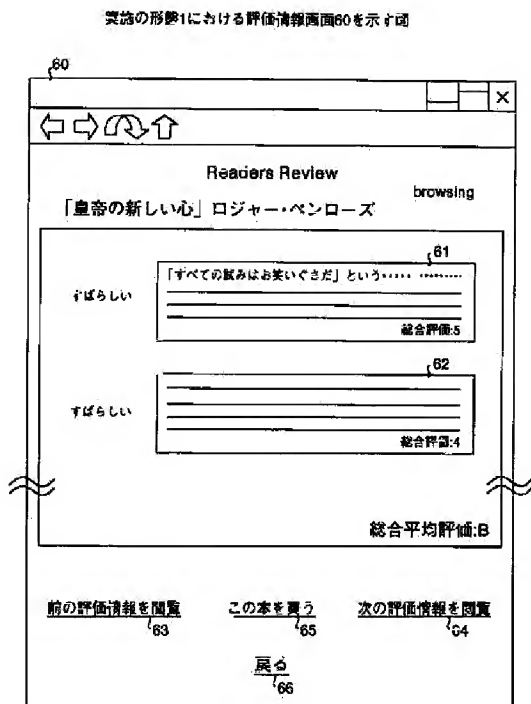 実施の形態1における評価情報画面60を示す図
60
×
Readers Review
browsing
「皇帝の新しい心」ロジャー・ペンローズ
61
「すべての試みはお笑いぐさだ」という‥‥‥ ‥‥‥‥
すばらしい
総合評価:5
62
すばらしい
総合評価:4
総合平均評価:B
前の評価情報を閲覧 この本を買う 次の評価情報を閲覧
63 65 64
戻る
66